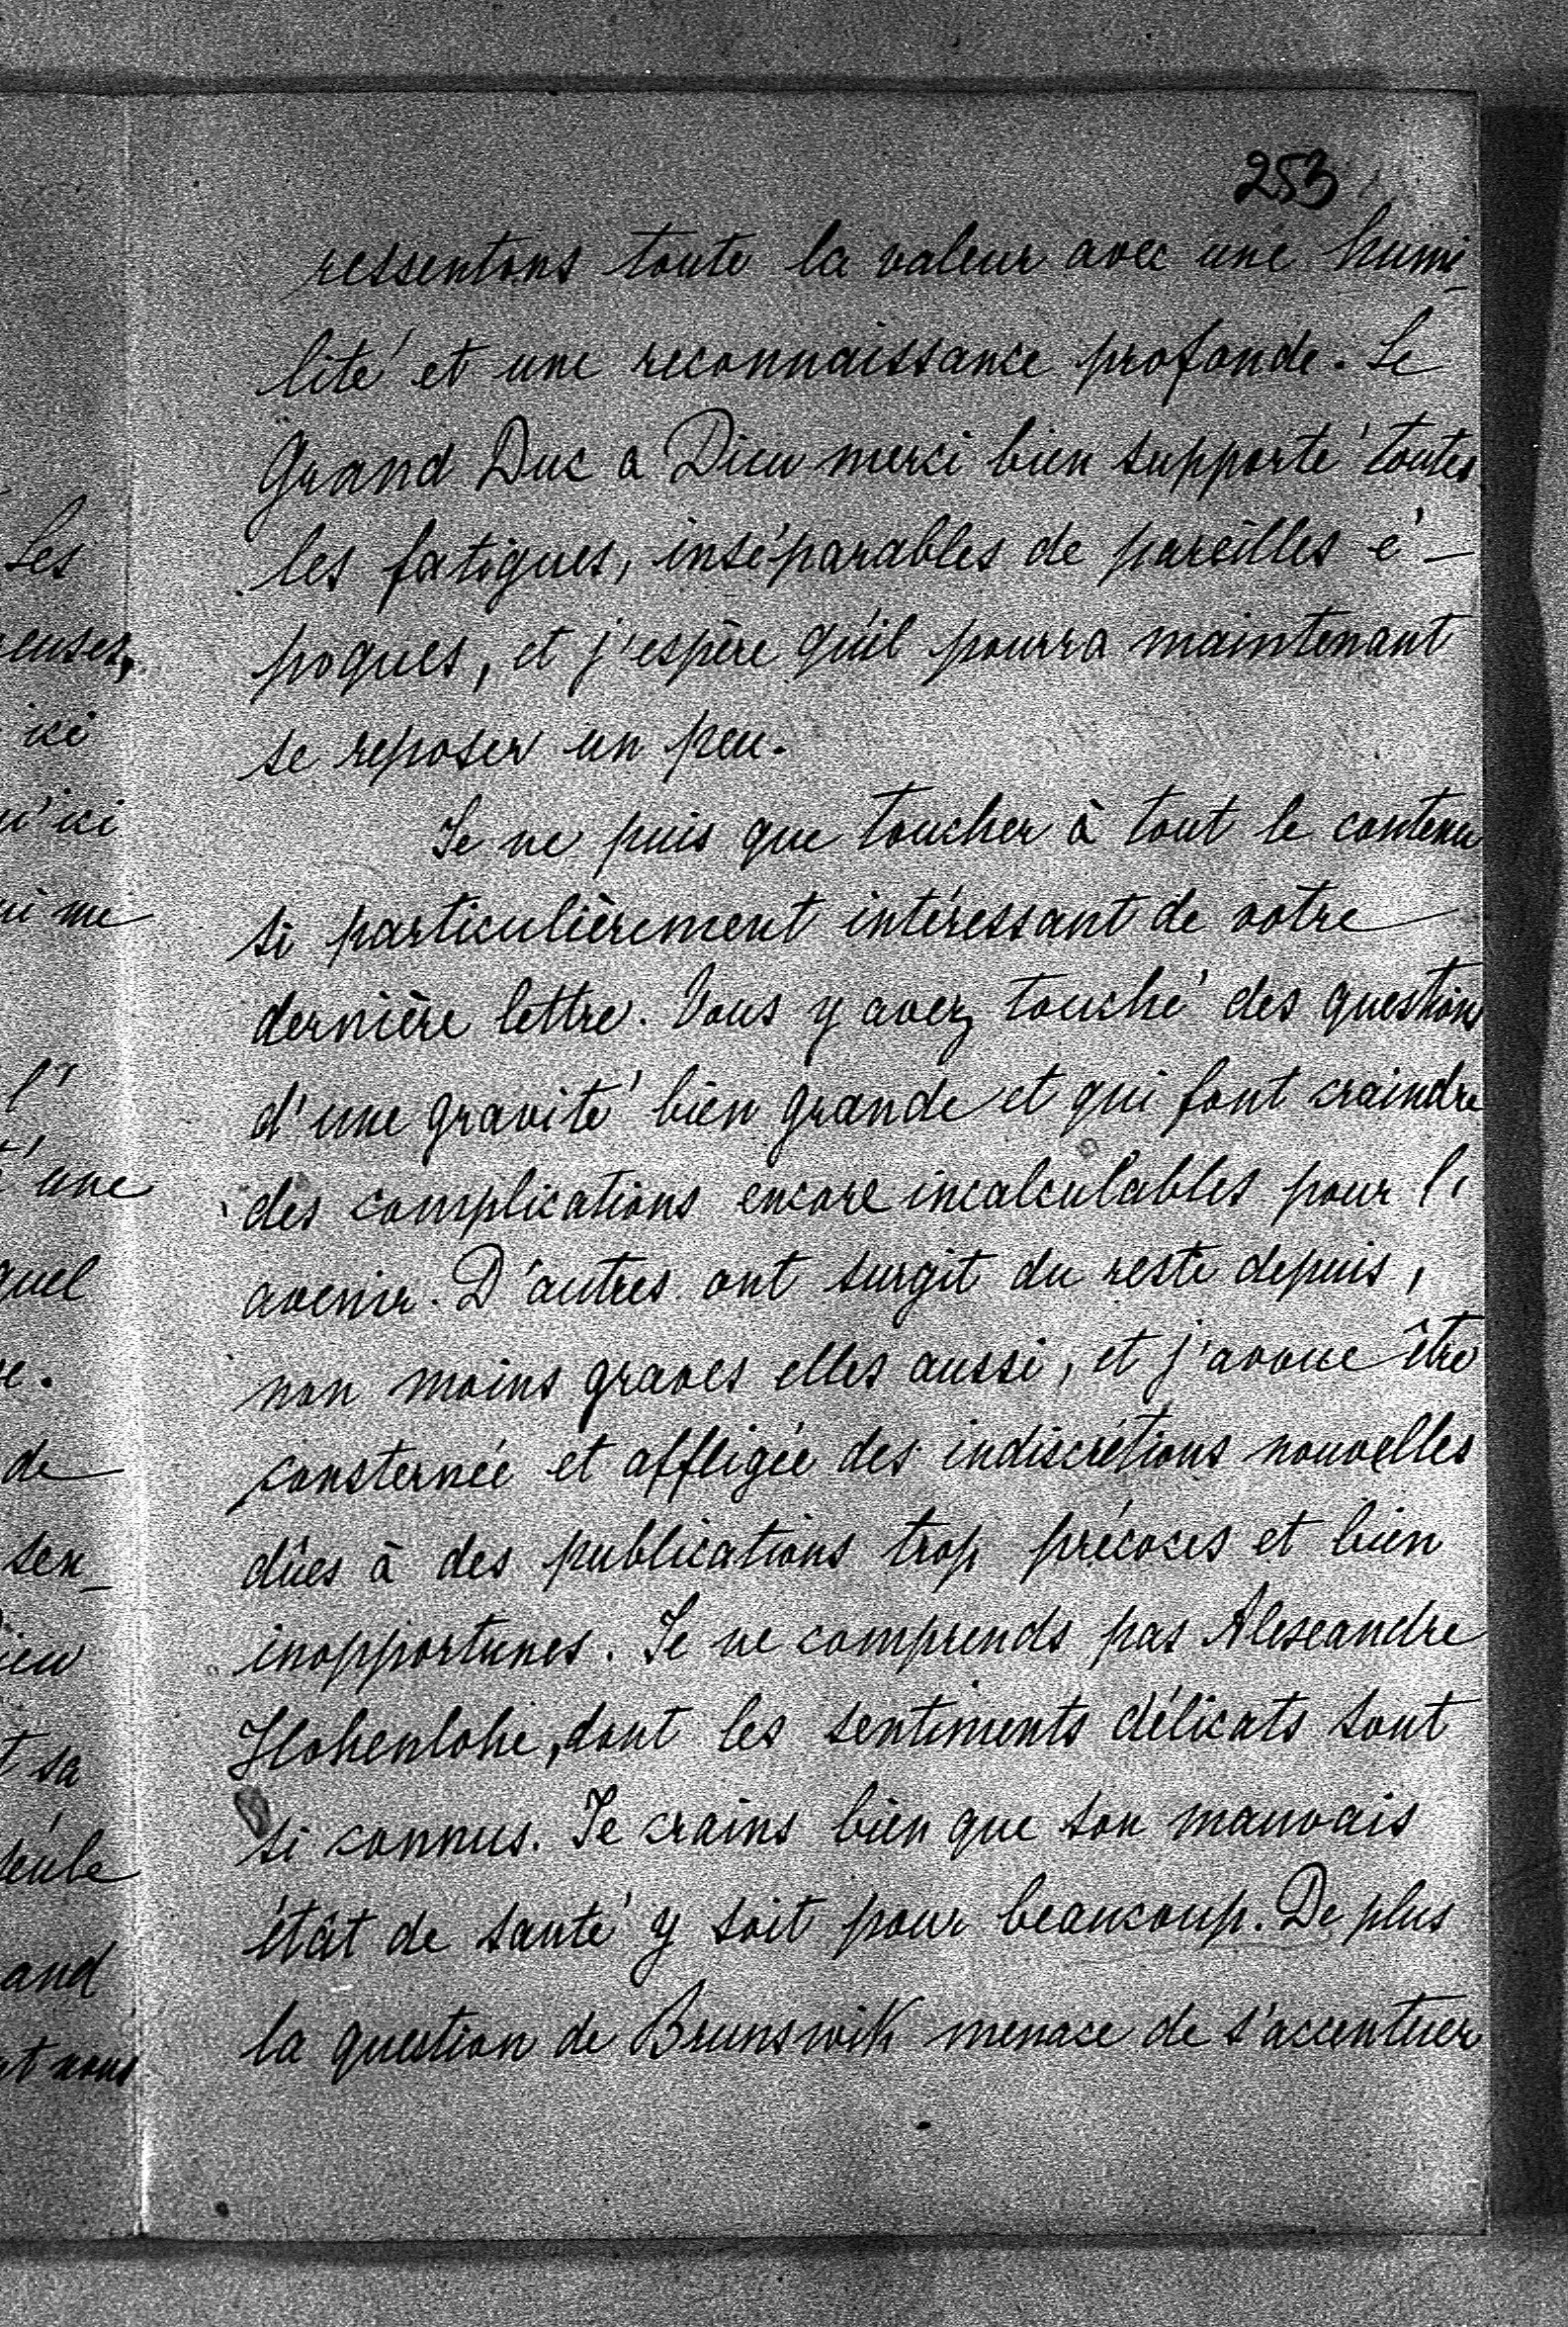 253
ressentons toute la valeur avec une humi-
lité et une reconnaissance profonde. Le
Grand Duc a Dieu merci bien supporté toutes
les fatigues, inséparables de pareilles é-
poques, et j'espère qu'il pourra maintenant
se reposer un peu.
Je ne puis que toucher à tout le contenu
si particulièrement intéressant de votre
dernière lettre. Vous y avez touché des questions
d'une gravité bien grande et qui font craindre
des complications encore incalculables pour l'
avenir. D'autres ont surgit du reste depuis,
non moins graves elles aussi, et j'avoue être
consternée et affligée des indiscrétions nouvelles
dûes à des publications trop précoces et bien
inopportunes. Je ne comprends pas Alexandre
Hohenlohe, dont les sentiments délicats sont
si connus. Je crains bien que son mauvais
étât de santé y soit pour beaucoup. De plus
la question de Brunswik menace de s'accentuer
Les
euses,
ici
u'ici
ui me
l'
t'une
quel
de
sen-
ieu
t sa
seule
and
nt nous